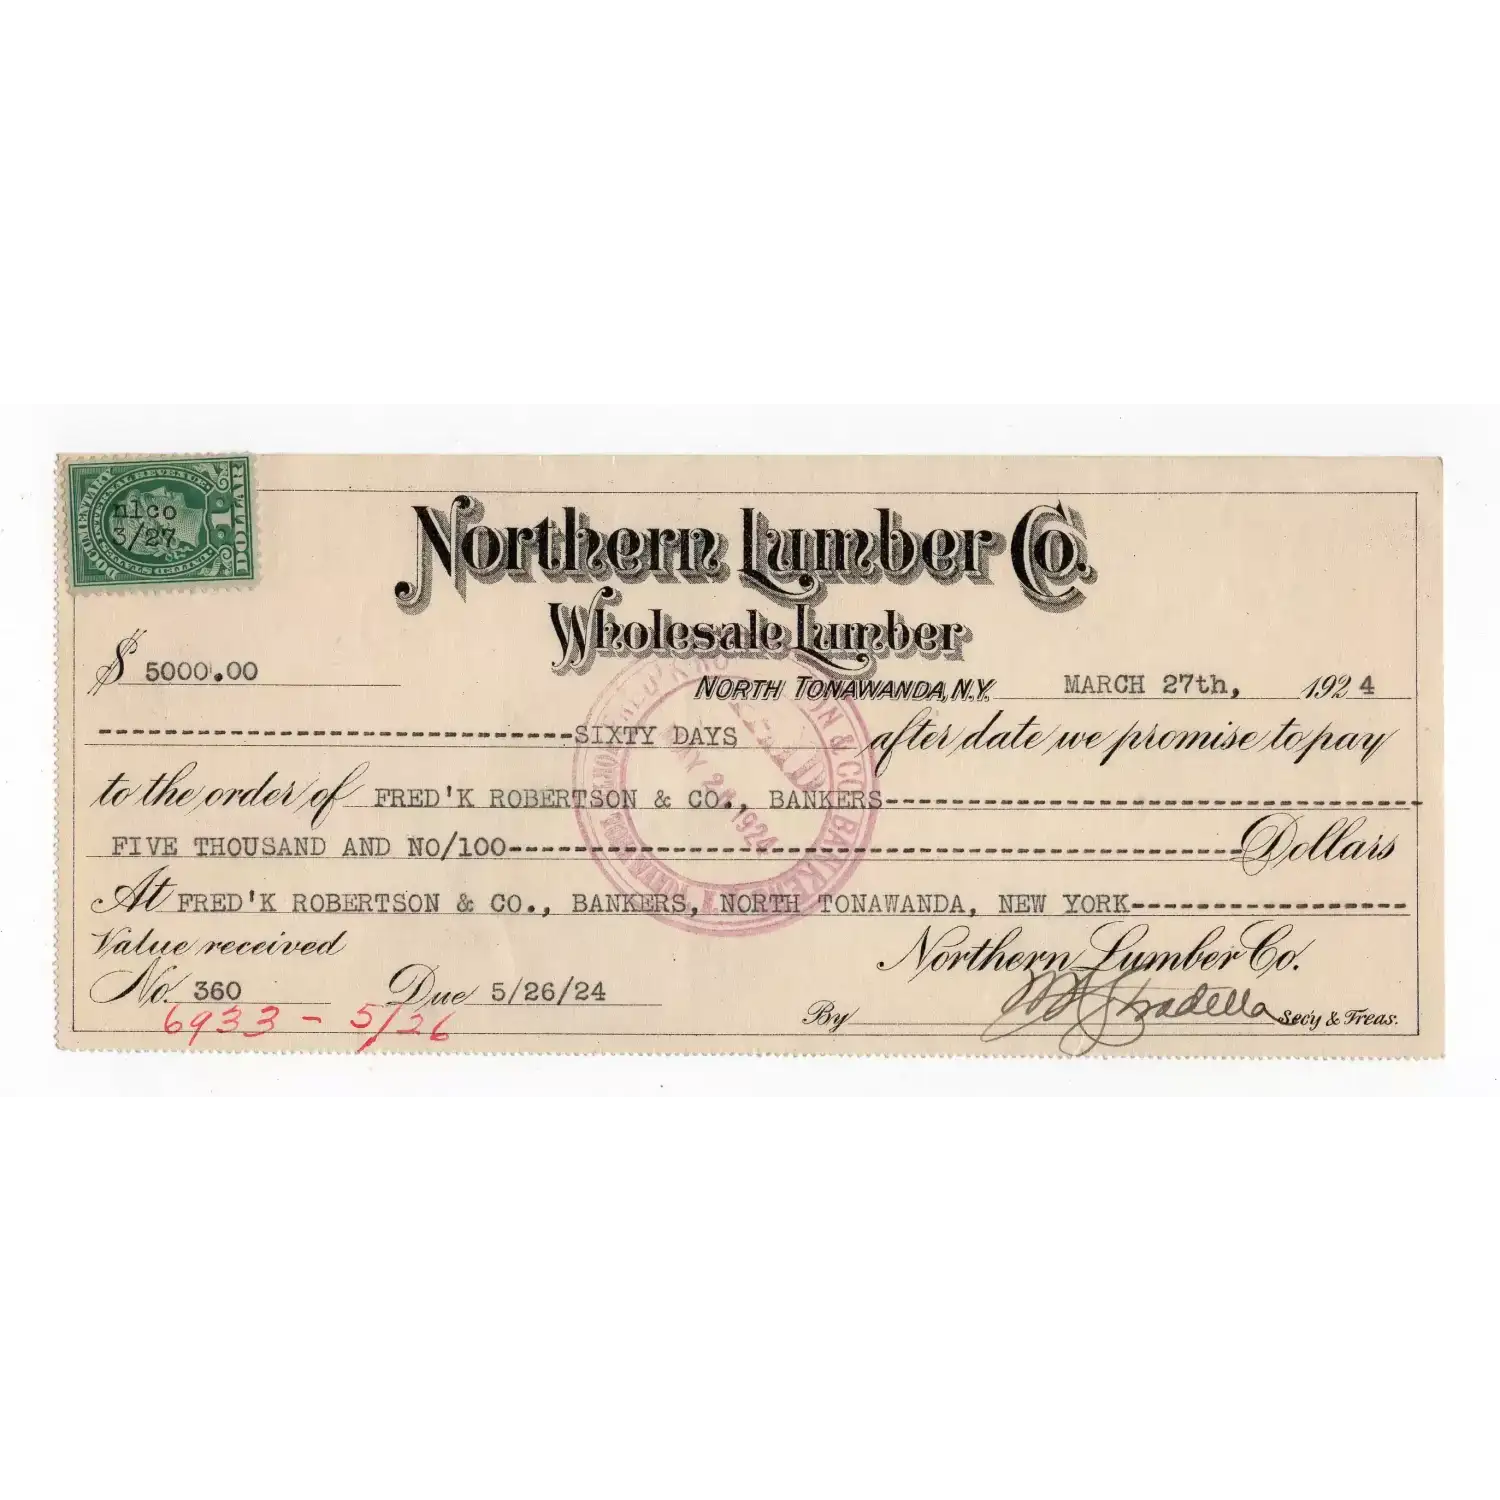 DOCUMENTARY
UNITED STATES INTERNAL REVENUE
1 DOLLAR
nlco
3/27
Northern Lumber Co.
Wholesale Lumber
NORTH TONAWANDA, N.Y. MARCH 27th, 1924
$ 5000.00
------------------------------SIXTY DAYS after date we promise to pay
to the order of FRED'K ROBERTSON & CO., BANKERS---------------------------------
FIVE THOUSAND AND NO/100---------------------------------------------Dollars
At FRED'K ROBERTSON & CO., BANKERS, NORTH TONAWANDA, NEW YORK-----------------
Value received
No. 360 Due 5/26/24
6933 - 5/26
Northern Lumber Co.
By Secy & Treas.
PAID
1924
& CO. BANKERS